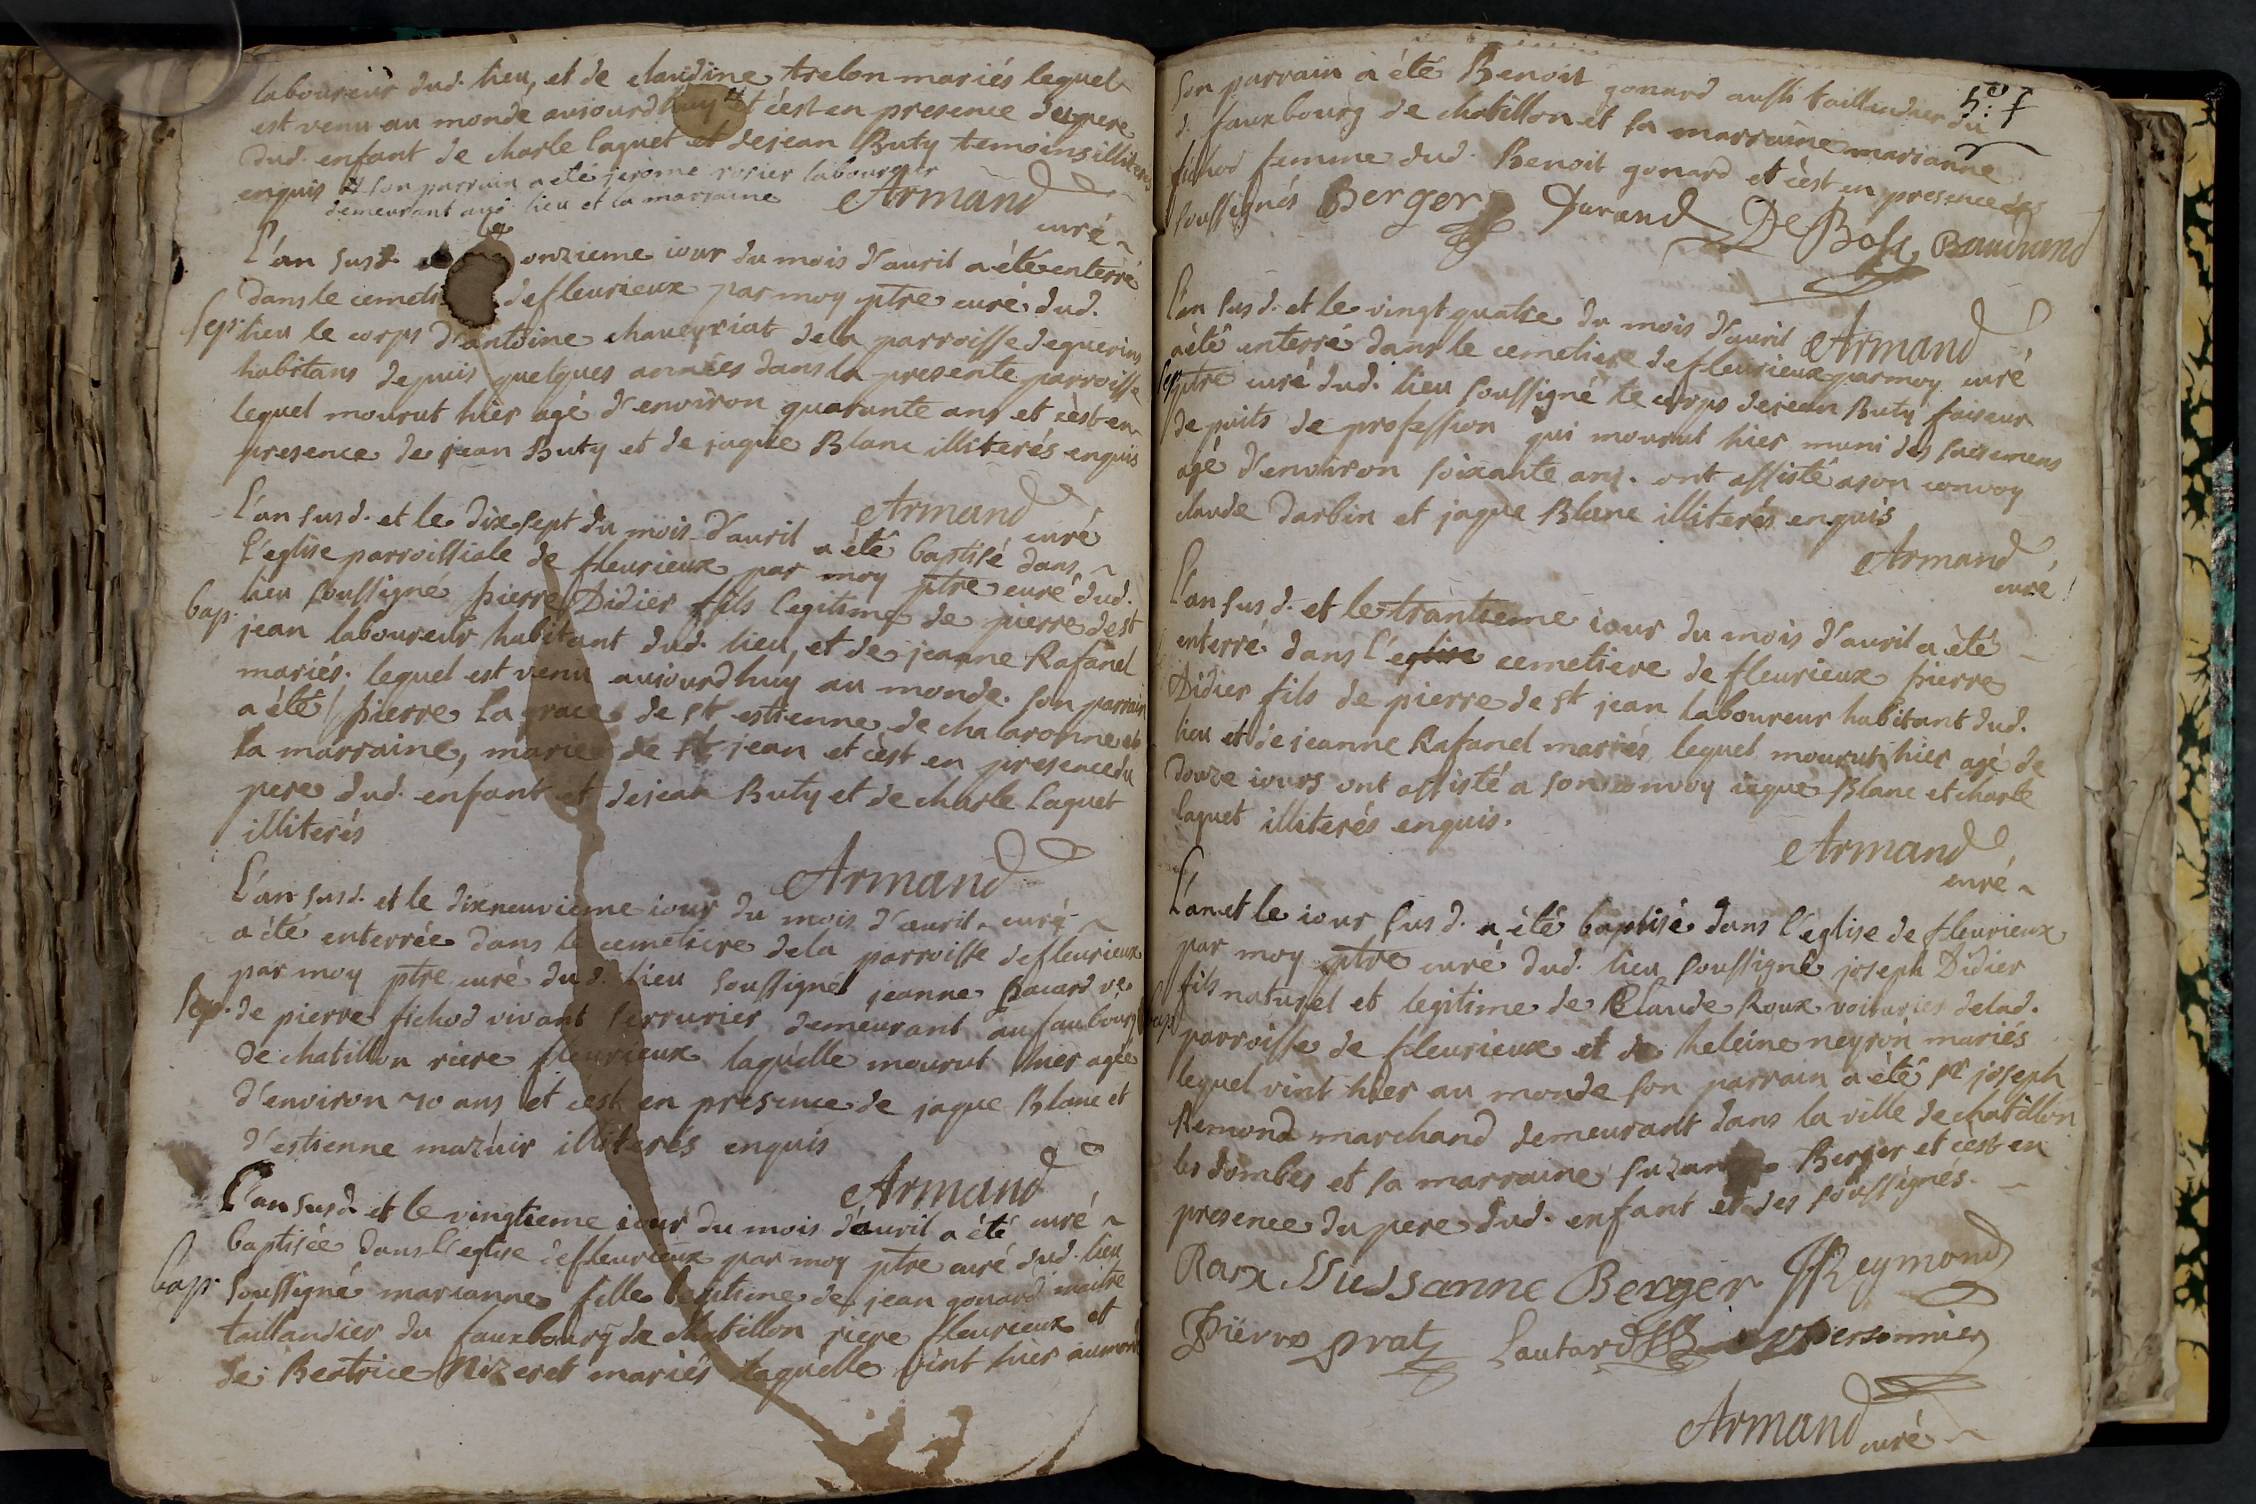 laboureur dud. lieu, et de claudine trelon mariés lequel
est venu au monde aujourdhuy # et c'est en presence du pere
dud. enfant de charle laguet et de jean Buty temoins illiterés
enquis # son parrain a été jerome rosier laboureur
demeurant aud. lieu et la marraine
Armand
curé
L'an susd. et le onzieme iour du mois d'auril a été enterré
dans le cemeti de fleurieux par moy ptre curé dud.
Sep. lieu le corps d'antoine chaueyriat de la parroisse de
habitans depuis quelques années dans la presente parroisse
lequel mourut hier agé d'environ quarante ans et c'est en
presence de jean Buty et de jaque Blanc illiterés enquis
Armand
curé
L'an susd. et le dix sept du mois d'auril a été baptisé dans
l'eglise parroissiale de fleurieux par moy ptre curé dud.
Bap. lieu soussigné pierre Didier fils legitime de pierre de st
jean laboureur habitant dud. lieu, et de jeanne Rafanel
mariés. lequel est venu aujourdhuy au monde. son parrain
a été pierre la grace de st estienne de chalaronne et
la marraine, marie de st jean et c'est en presence du
pere dud. enfant et de jean Buty et de charle Laguet
illiterés
Armand
curé
L'an susd. et le dixneuvieme iour du mois d'auril
a été enterrée dans le cemetiere de la parroisse de fleurieux
par moy ptre curé dud. lieu soussigné jeanne Bacard ve
Sep. de pierre fichod vivant serrurier demeurant au faubourg
de chatillon riere fleurieux laquelle mourut hier agée
d'environ 70 ans et c'est en presence de jaque Blanc et
d'estienne mazuir illiterés enquis
Armand
curé
L'an susd. et le vingtieme iour du mois d'auril a été
baptisée dans l'eglise de fleurieux par moy ptre curé dud. lieu
Bap. soussigné marianne fille legitime de jean gonard maitre
taillandier du fauxbourg de chatillon riere fleurieux et
de Beatrice Nizeret mariés laquelle vint hier au monde
5.e f
son parrain a été Benoit gonard aussi taillandier du
d. fauxbourg de chatillon et la marraine marianne
fichod femme dud. Benoit gonard et c'est en presence des
soussignés Berger Durand De Bost Baudrand
Armand
curé
L'an susd. et le vingt quatre du mois d'auril
a été enterré dans le cemetiere de fleurieux par moy
Sep. ptre curé dud. lieu soussigné le corps de jean Buty faiseur
de puits de profession qui mourut hier muni des sacremens
agé d'environ soixante ans. ont assisté a son convoy
claude Darbin et jaque Blanc illiterés enquis
Armand
curé
L'an susd. et le trantieme iour du mois d'auril a été
enterré dans l'eglise cemetiere de fleurieux pierre
Didier fils de pierre de st jean laboureur habitant dud.
lieu et de jeanne Rafanel mariés lequel mourut hier agé de
douze iours ont assisté a son convoy iaque Blanc et charle
laguet illiterés enquis.
Armand
curé
L'an et le iour susd. a été baptisé dans l'eglise de fleurieux
par moy ptre curé dud. lieu soussigné joseph Didier
Bap. fils naturel et legitime de Claude Roux voiturier de lad.
parroisse de fleurieux et de heleine neyron mariés
lequel vint hier au monde son parrain a été sr joseph
Remond marchand demeurant dans la ville de chatillon
les dombes et la marraine suzanne Berger et c'est en
presence du pere dud. enfant et des soussignés.
Roux Sussanne Berger JReymond
Pierre prat Lautard personnier
Armand curé